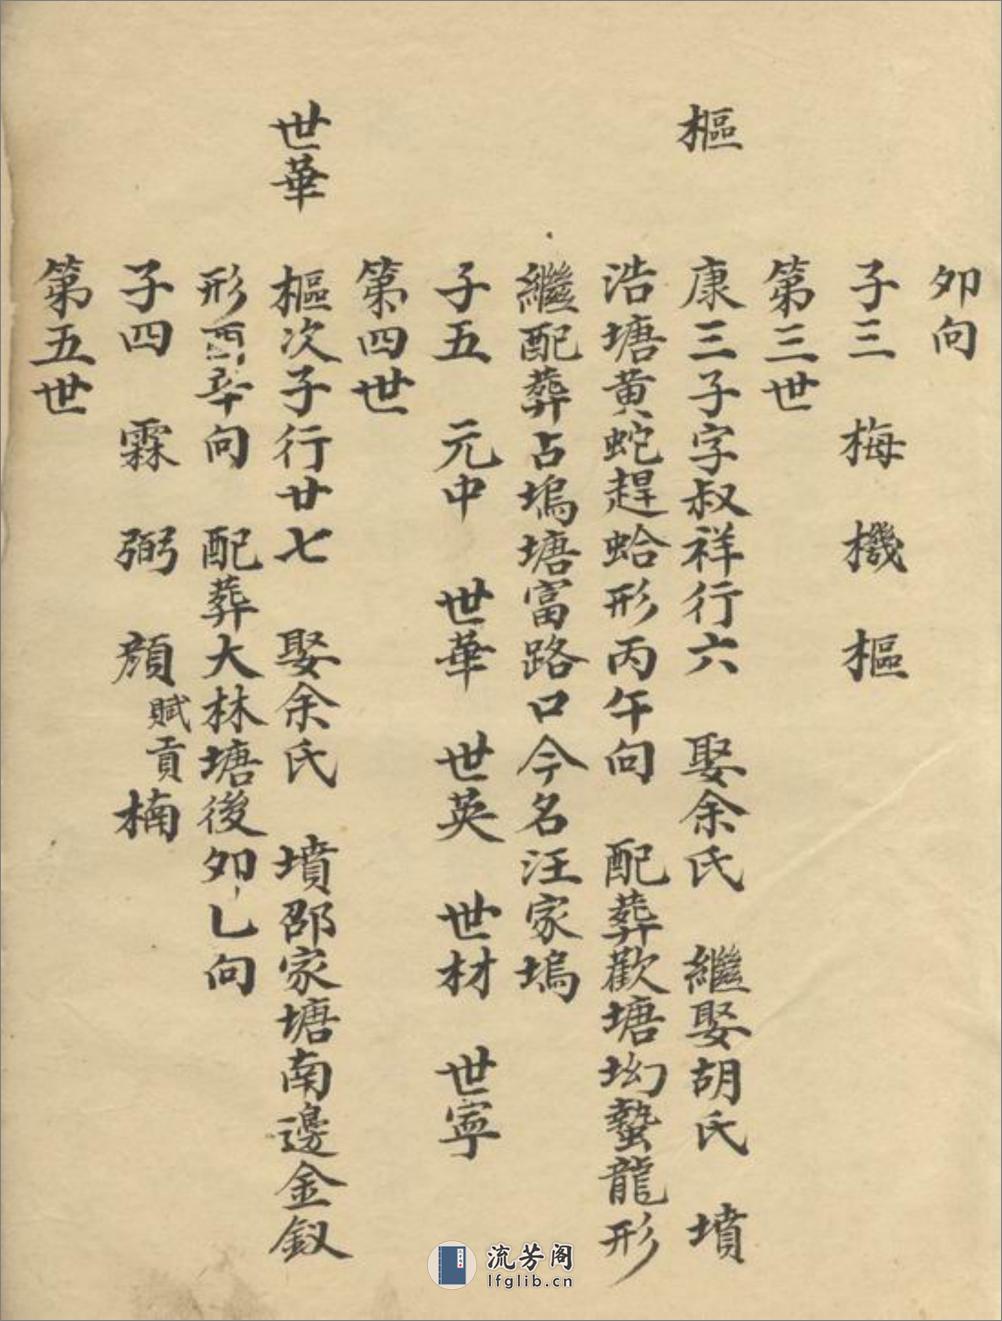 卯向
子三 梅 機 樞
第三世
樞 康三子字叔祥行六 娶余氏 繼娶胡氏 墳
浩塘黄蛇趕蛤形丙午向 配葬歡塘坳蟄龍形
繼配葬占塢塘富路口今名汪家塢
子五 元中 世華 世英 世材 世寧
第四世
世華 樞次子行廿七 娶余氏 墳邵家塘南邊金釵
形酉辛向 配葬大林塘後卯乚向
子四 霖 弼 顔 賦貢 楠
第五世
流芳阁
lfglib.cn